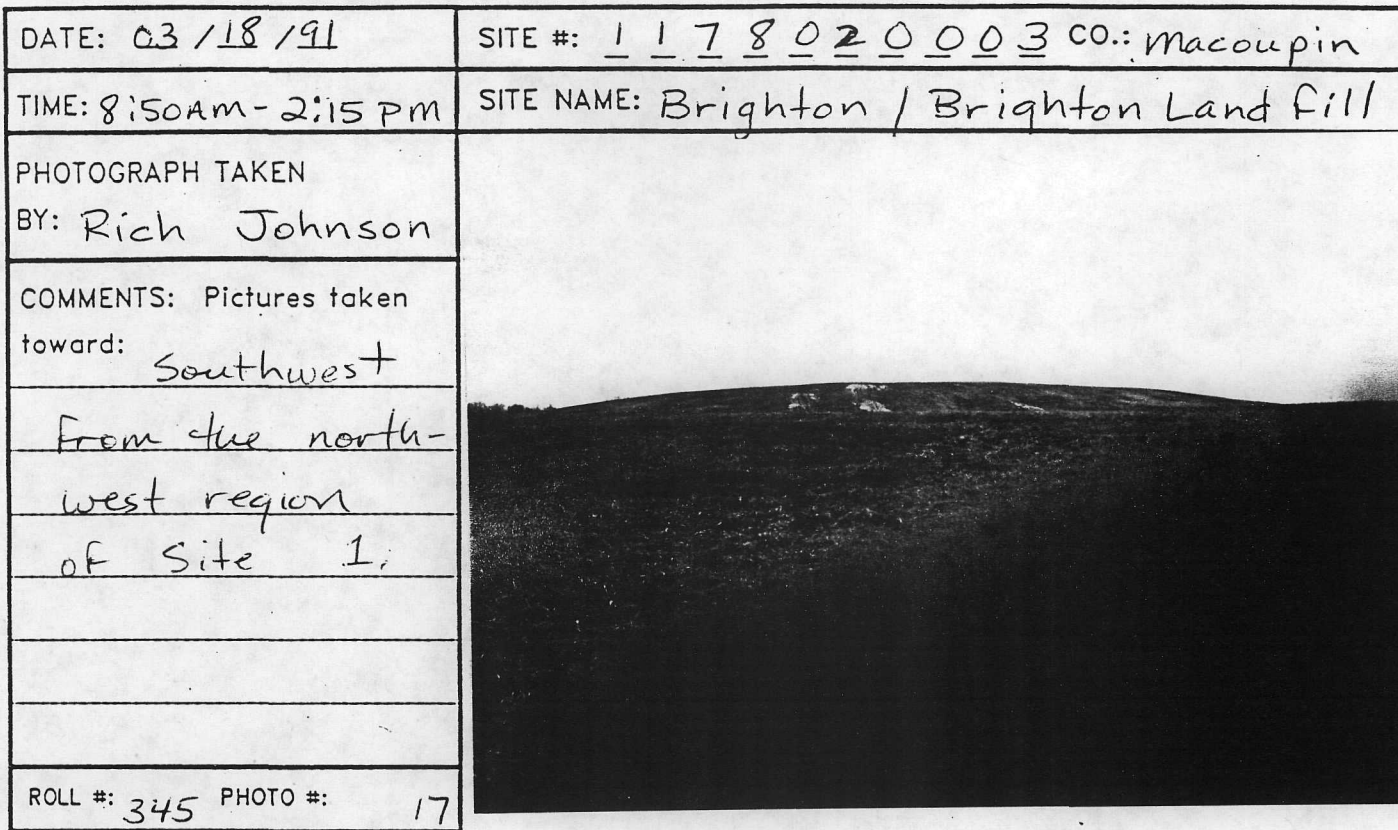 DATE: 03/18/91
SITE #: 1178020003 CO.: Macoupin
TIME: 8:50AM-2:15 PM
SITE NAME: Brighton / Brighton Land fill
PHOTOGRAPH TAKEN
BY: Rich Johnson
COMMENTS: Pictures taken
toward:
Southwest
From the north-
west region
of Site 1.
ROLL #: 345 PHOTO #: 17